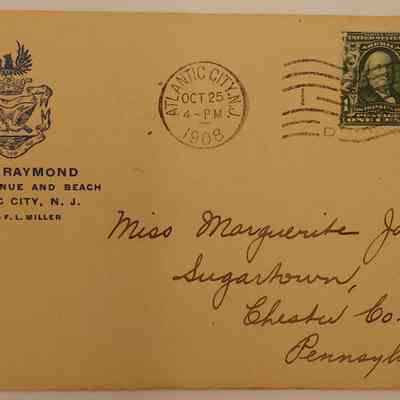 RAYMOND
NUE AND BEACH
C CITY, N. J.
F. L. MILLER
ATLANTIC CITY, N.J.
OCT 25
4-PM
1908
1
D
Miss Marguerite Ja
Sugartown,
Chester Co.
Pennsylv